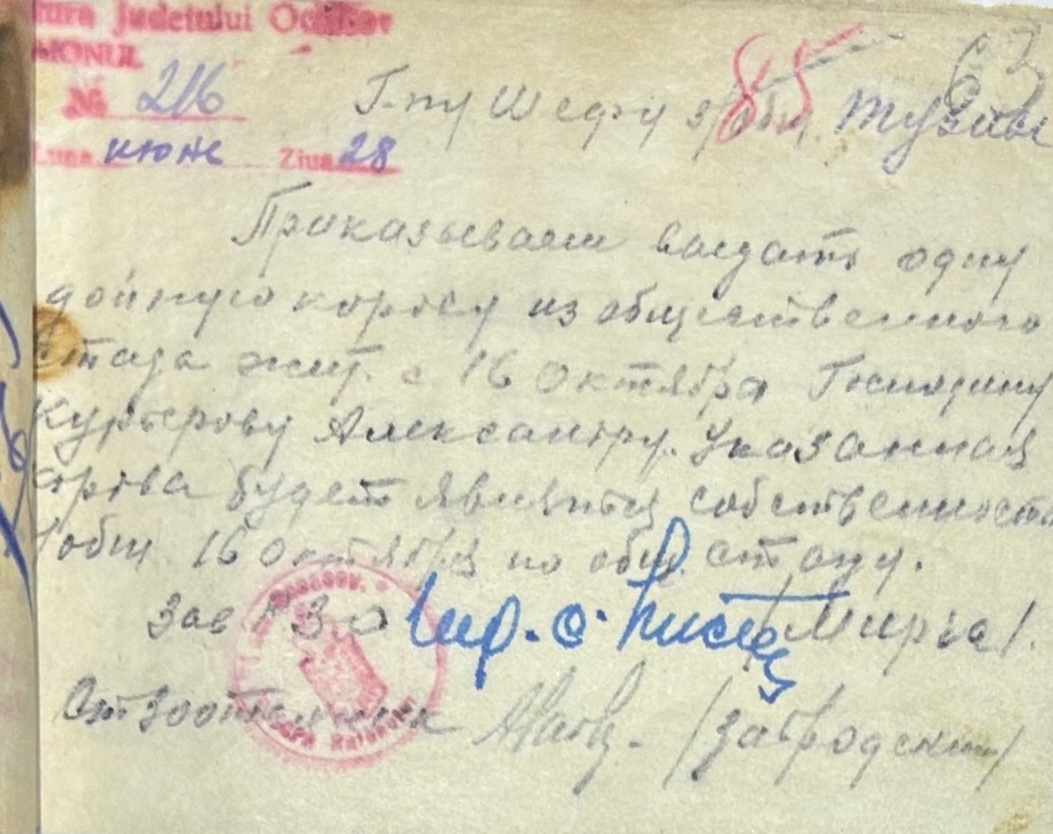 tura Judetului Oceacov
RAIONUL
№ 216
Luna июнь Ziua 28
85
63
Г-ну Шефу с/общ. Тузлы
Приказываем выдать одну
дойную корову из общественного
стада жит. с 16 Октября Господину
Курьерову Александру. Указанная
корова будет являться собственностью
общ. 16 Октября по общ. стаду.
Зав РЗО /Мирза/.
Ст зоотехник /Завродский/